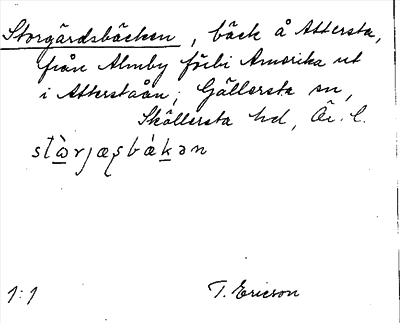 Storgärdsbäcken, bäck å Attersta,
från Almby förbi Amerika ut
i Atterstaån; Gällersta sn,
Sköllersta hd, Ör. l.
1:1 T. Ericson